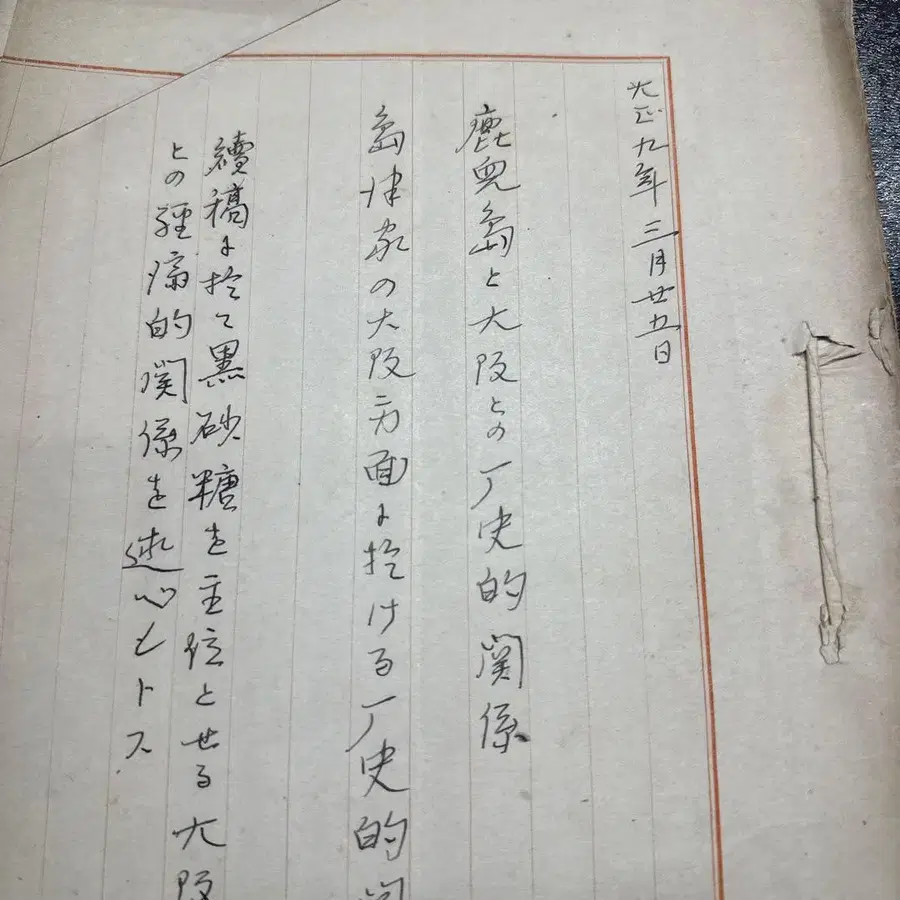 大正九年三月廿五日
鹿兒島と大阪との厂史的関係
島津家の大阪方面に於ける厂史的関
續稿に於て黒砂糖を主位とせる大阪
との経済的関係を述トス